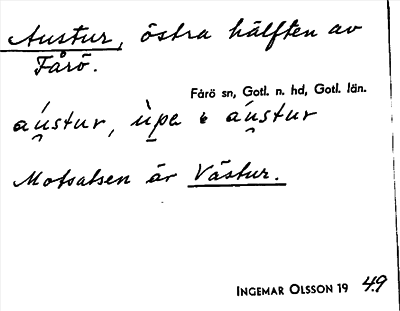 Austur, östra hälften av
Fårö.
Fårö sn, Gotl. n. hd, Gotl. län.
áu̯stur, ùpe áu̯stur
Motsatsen är Västur.
INGEMAR OLSSON 19 49